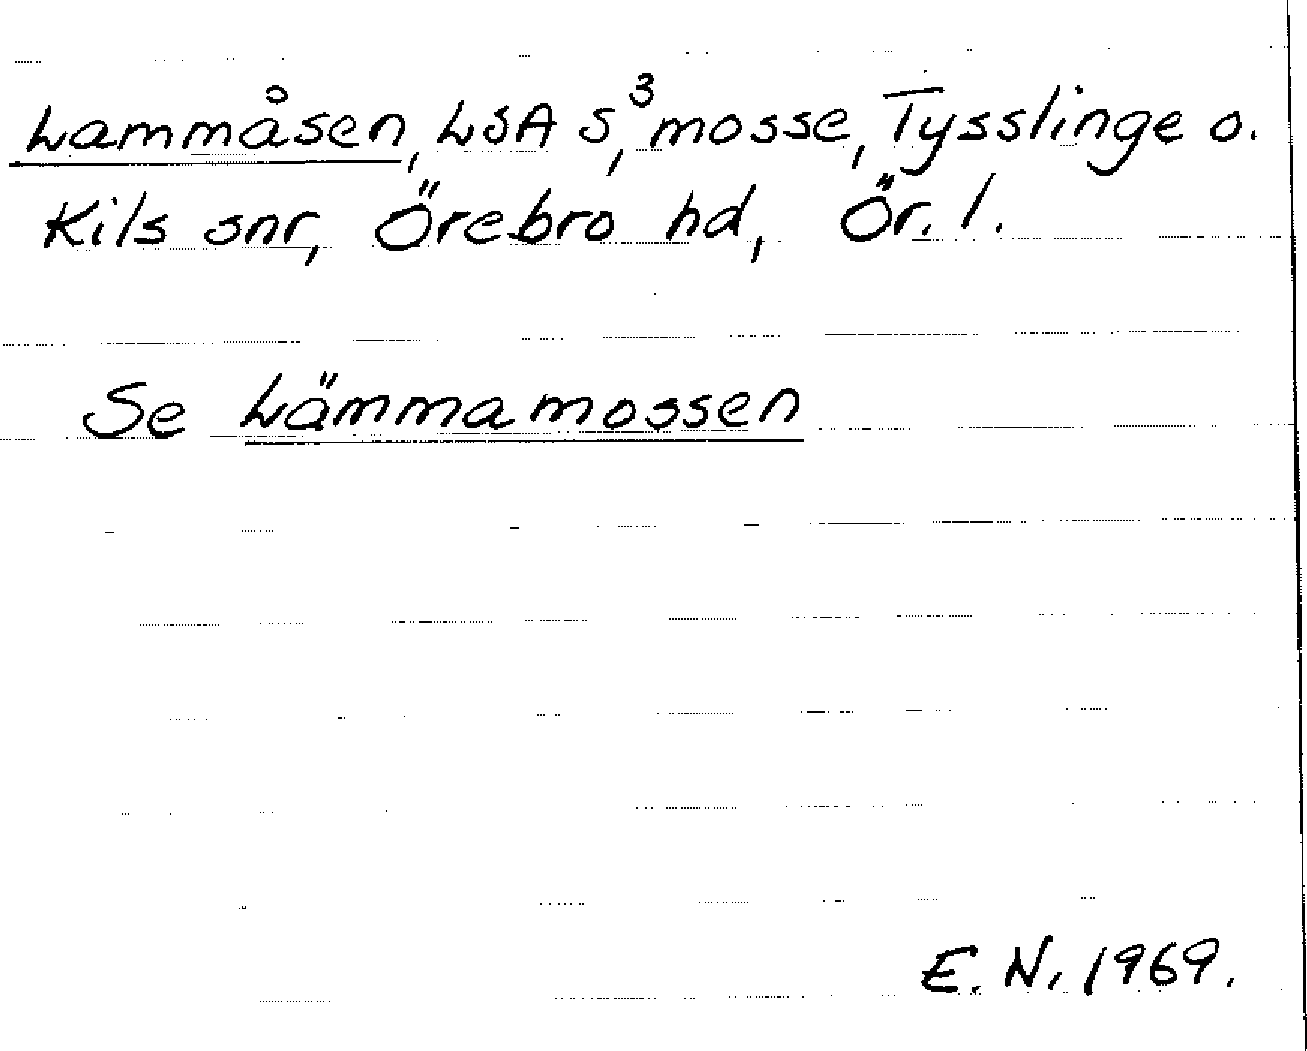 Lammåsen, LSA S³, mosse, Tysslinge o.
Kils snr, Örebro hd, Ör. l.
Se Lämmamossen
E. N. 1969.